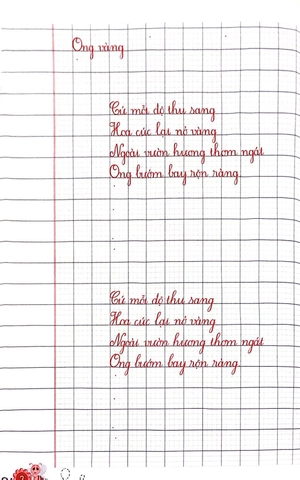 Ong vàng
Cứ mỗi độ thu sang
Hoa cúc lại nở vàng
Ngoài vườn hương thơm ngát
Ong bướm bay rộn ràng.
Cứ mỗi độ thu sang
Hoa cúc lại nở vàng
Ngoài vườn hương thơm ngát
Ong bướm bay rộn ràng.